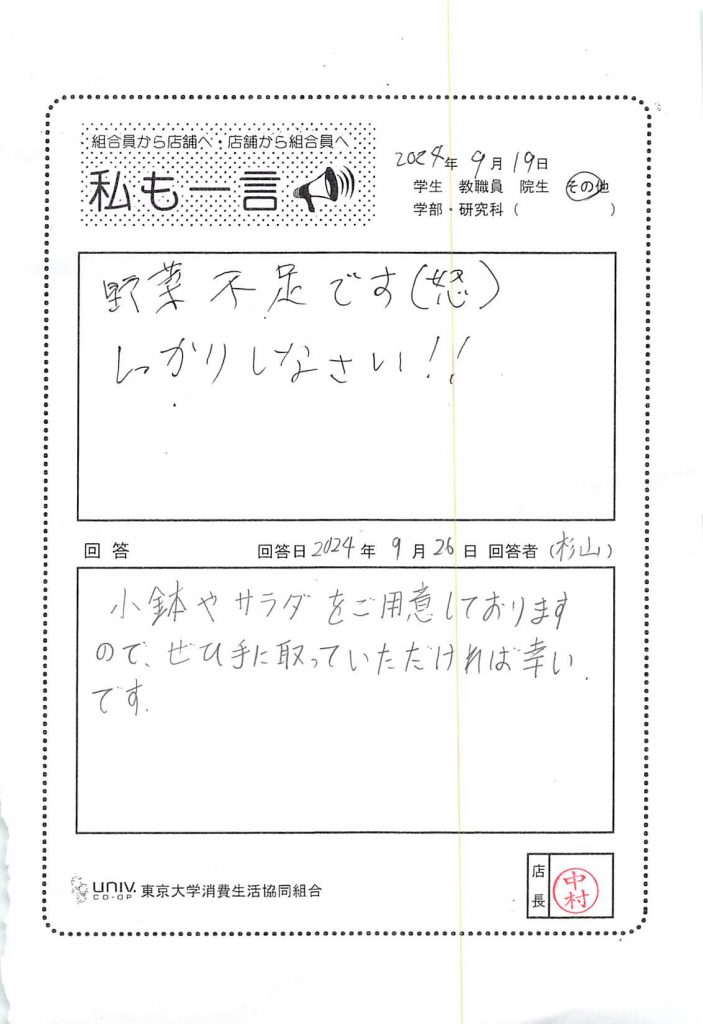 組合員から店舗へ・店舗から組合員へ
私も一言
2024年 9月 19日
学生 教職員 院生 その他
学部・研究科（ ）
野菜不足です(怒)
しっかりしなさい!!
回答 回答日 2024年 9月 26日 回答者（杉山）
小鉢やサラダをご用意しております
ので、ぜひ手に取っていただければ幸い
です.
UNIV. CO-OP 東京大学消費生活協同組合
店長 中村